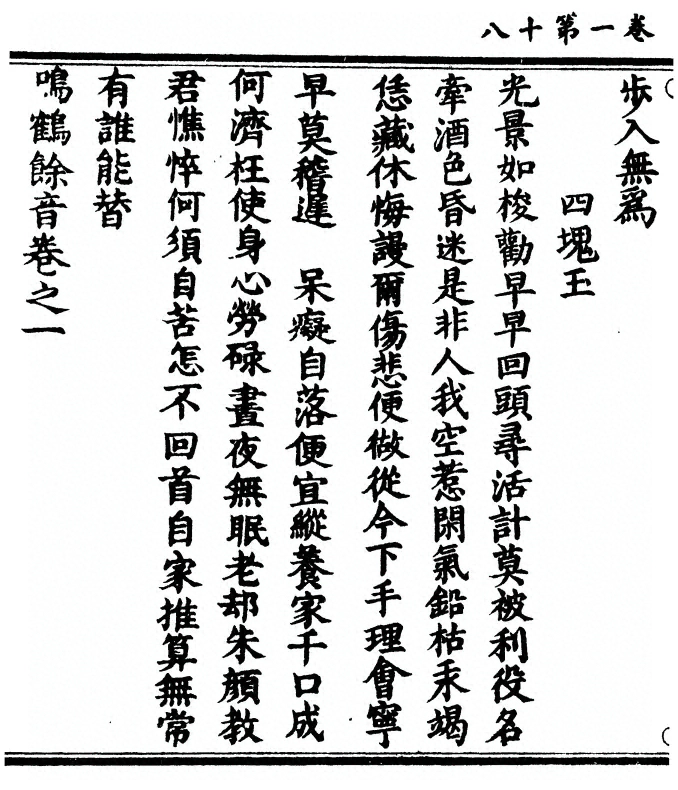 卷一第十八
步入無爲
四塊玉
光景如梭勸早早回頭尋活計莫被利役名
牽酒色昏迷是非人我空惹閑氣鉛枯汞竭
恁藏休悔謾爾傷悲便做從今下手理會寧
早莫稽遲 呆癡自落便宜縱養家千口成
何濟枉使身心勞碌晝夜無眠老却朱顏教
君憔悴何須自苦怎不回首自家推算無常
有誰能替
鳴鶴餘音卷之一